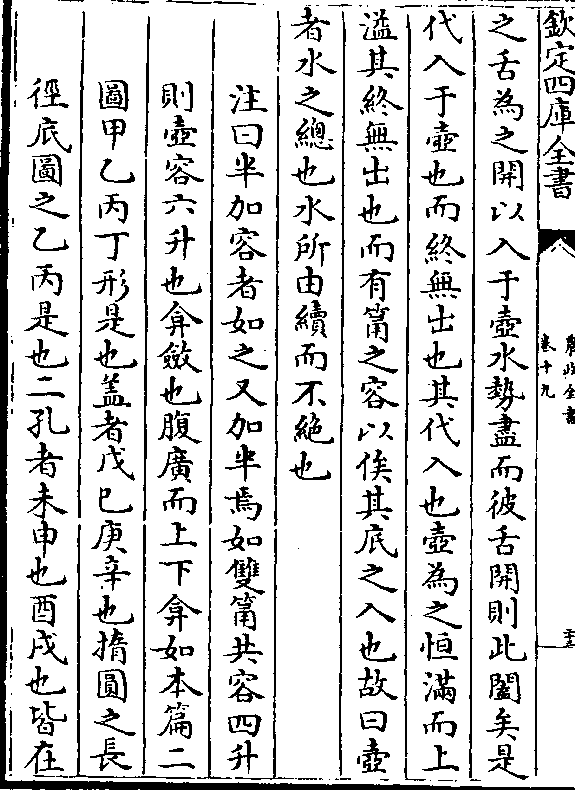 欽定四庫全書
農政全書
卷十九
之舌為之開以入于壺水勢盡而彼舌開則此闔矣是
代入于壺也而終無出也其代入也壺為之恒滿而上
溢其終無出也而有筩之容以俟其底之入也故曰壺
者水之總也水所由續而不絶也
注曰半加容者如之又加半焉如雙筩共容四升
則壺容六升也弇斂也腹廣而上下弇如本篇二
圖甲乙丙丁形是也盖者戊已庚辛也撱圓之長
徑底圖之乙丙是也二孔者未申也酉戌也皆在